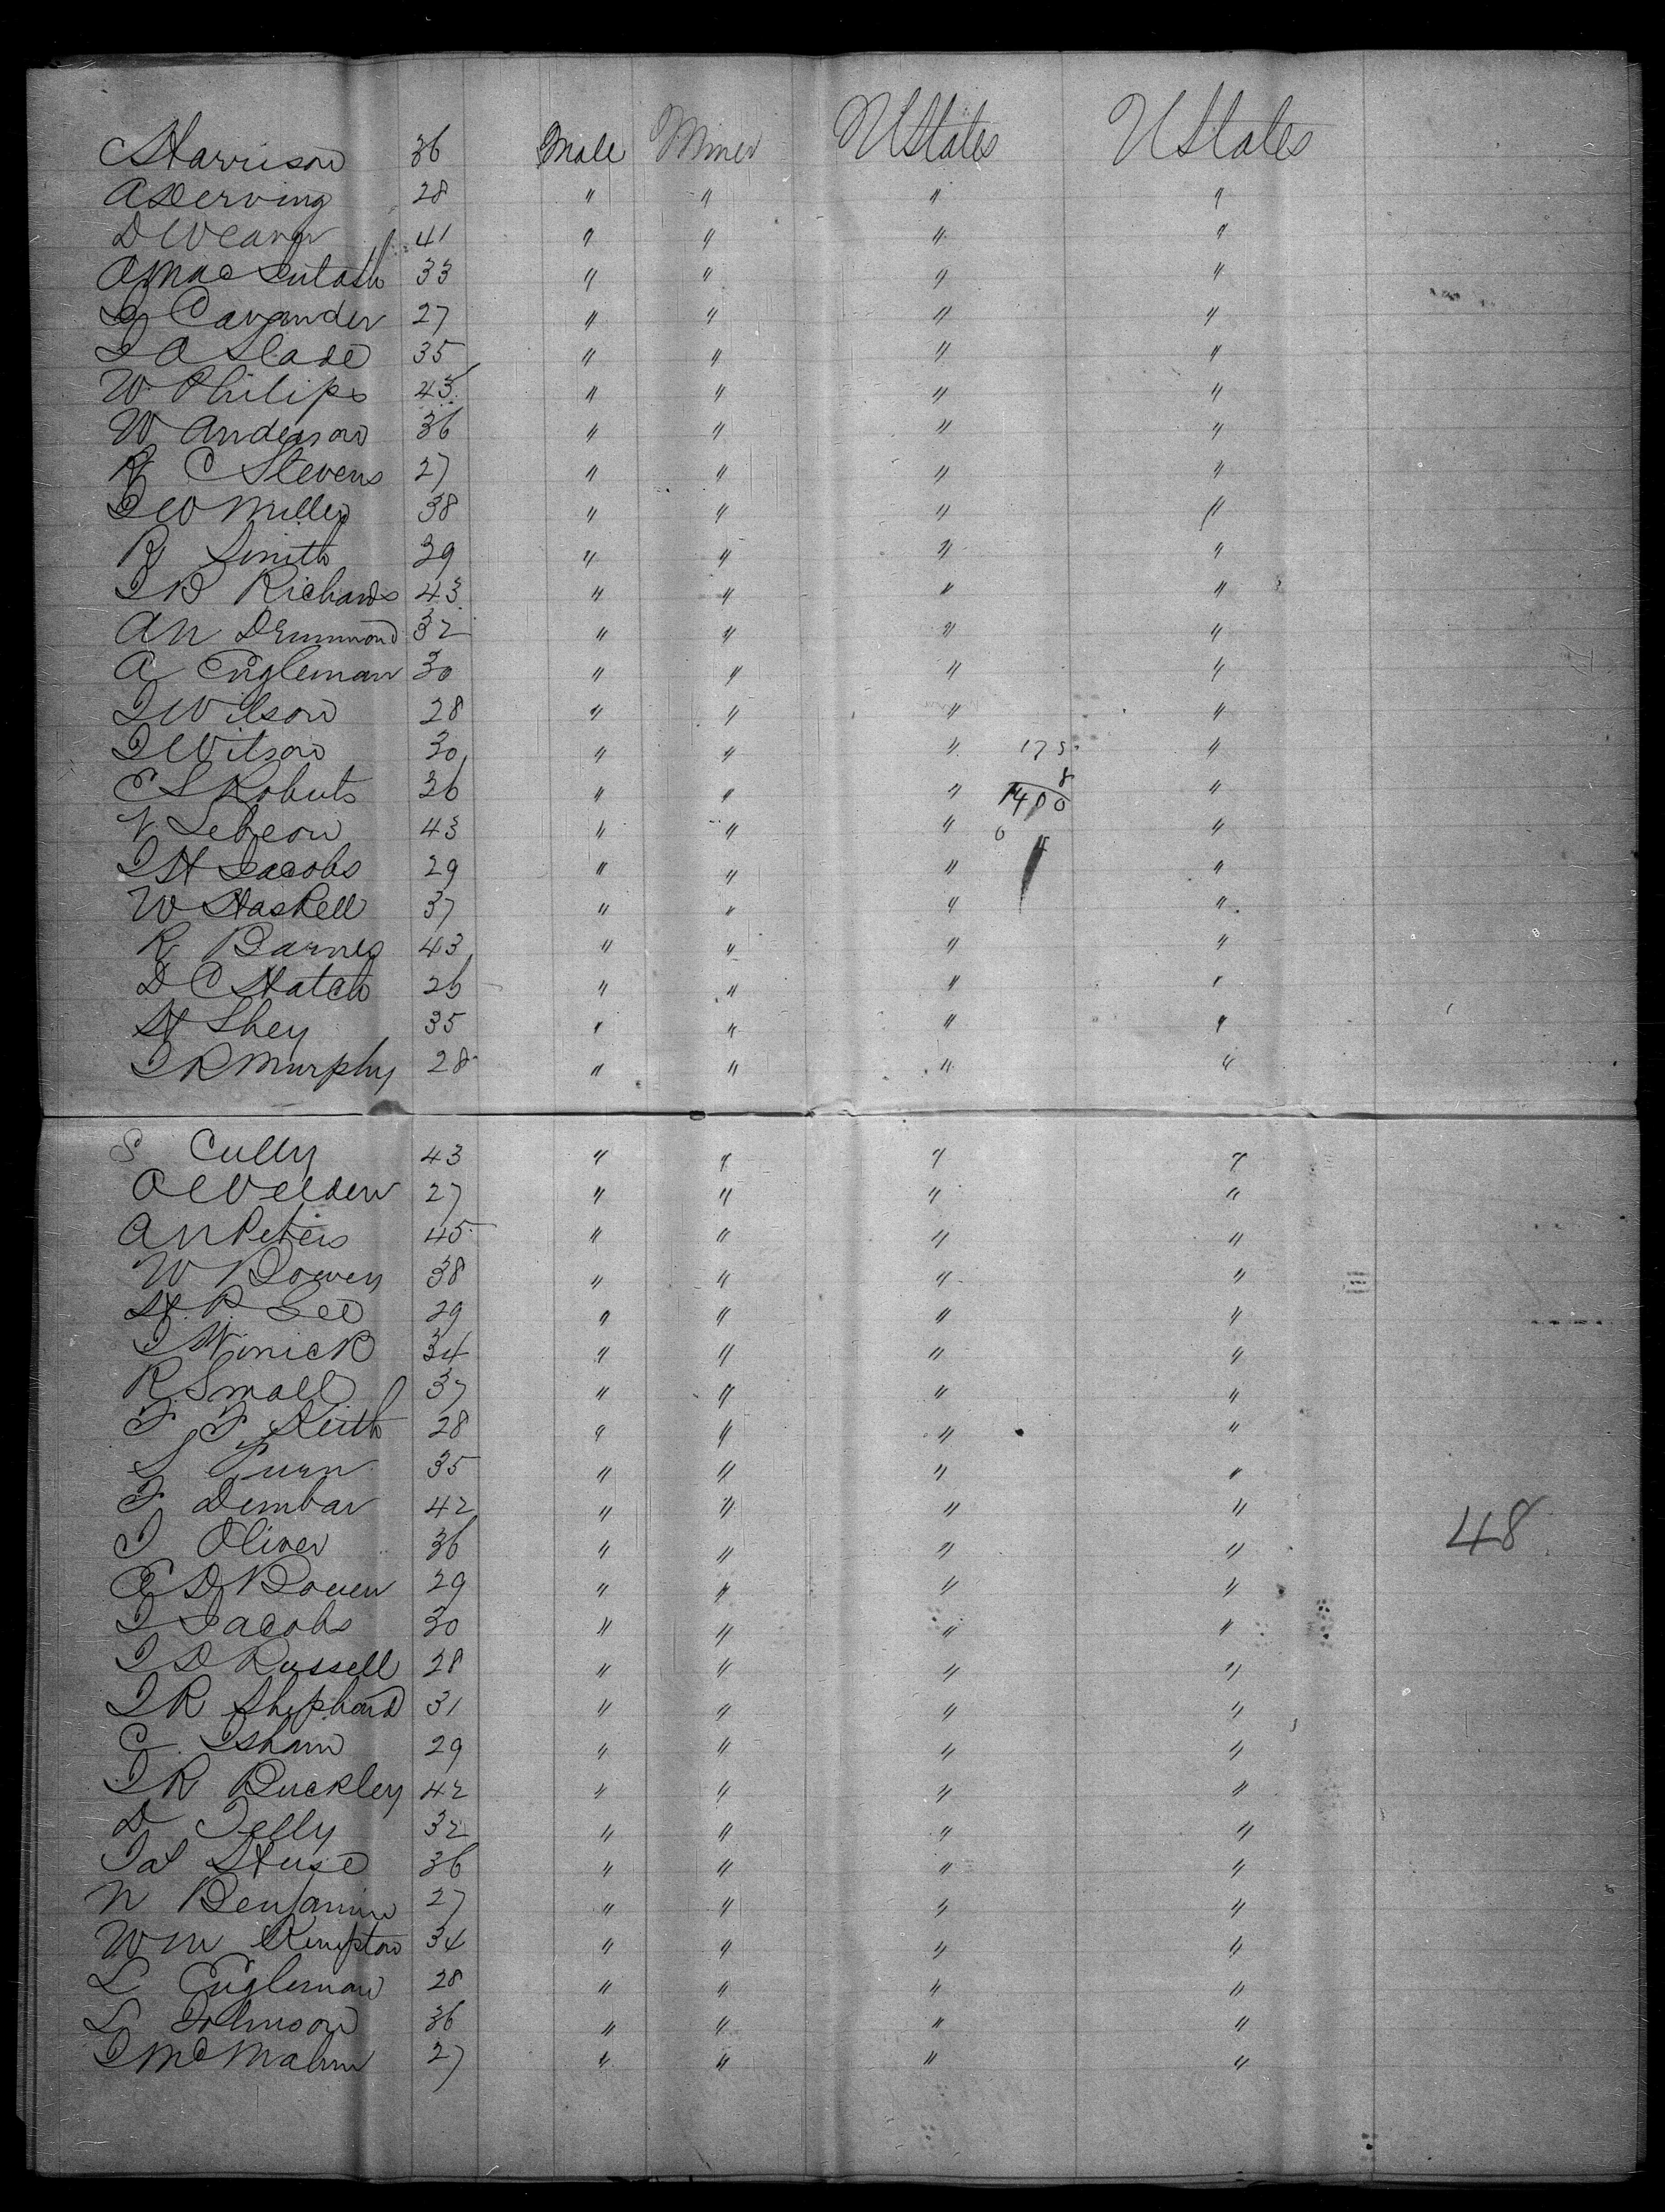 C Harrison 36 Male Miner U States U States
A Derving 28 " " " "
D Weaver 41 " " " "
A MacIntosh 33 " " " "
G Cavander 27 " " " "
J A Slade 35 " " " "
W Philips 43 " " " "
W Anderson 36 " " " "
R C Stevens 27 " " " "
J W Miller 38 " " " "
R Smith 29 " " " "
J B Richards 43 " " " "
A N Drummond 32 " " " "
A Engleman 30 " " " "
J Wilson 28 " " " "
J Wilson 30 " " " 175 "
8
E S Roberts 36 " " " 1400 "
N Lebeon 43 " " " 0 "
J H Jacobs 29 " " " "
W Haskell 37 " " " "
R Barnes 43 " " " "
D C Hatch 26 " " " "
H Shey 35 " " " "
J R Murphy 28 " " " "
S Cully 43 " " " "
A Welden 27 " " " "
A N Peters 45 " " " "
W Bowey 38 " " " "
H. P. Lee 29 " " " "
J Winick 34 " " " "
R Small 37 " " " "
F F Keith 28 " " " "
S Purn 35 " " " "
F Dembar 42 " " " "
J Oliver 36 " " " " 48
E D Bowen 29 " " " "
J Jacobs 30 " " " "
J D Russell 28 " " " "
J R Shephard 31 " " " "
C Isham 29 " " " "
J R Buckley 42 " " " "
D Telly 32 " " " "
J A Huse 36 " " " "
N Benjamin 27 " " " "
Wm Kimpton 34 " " " "
L Engleman 28 " " " "
L Johnson 36 " " " "
J McMahn 27 " " " "